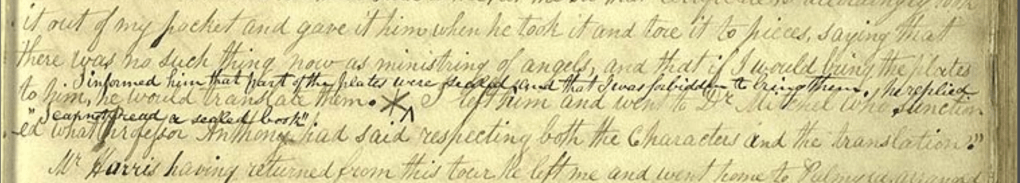 it out of my pocket and gave it him when he took it and tore it to pieces, saying that
there was no such thing now as ministring of angels, and that if I would bring the plates
I informed him that part of the plates were sealed, and that I was forbidden to bring them, he replied
to him, he would translate them. I left him and went to Dr Mitchel who sanction
"I cannot read a sealed book".
-ed what Professor Anthony had said respecting both the Characters and the translation."
Mr Harris having returned from this tour he left me and went home to Palmyra, arranged